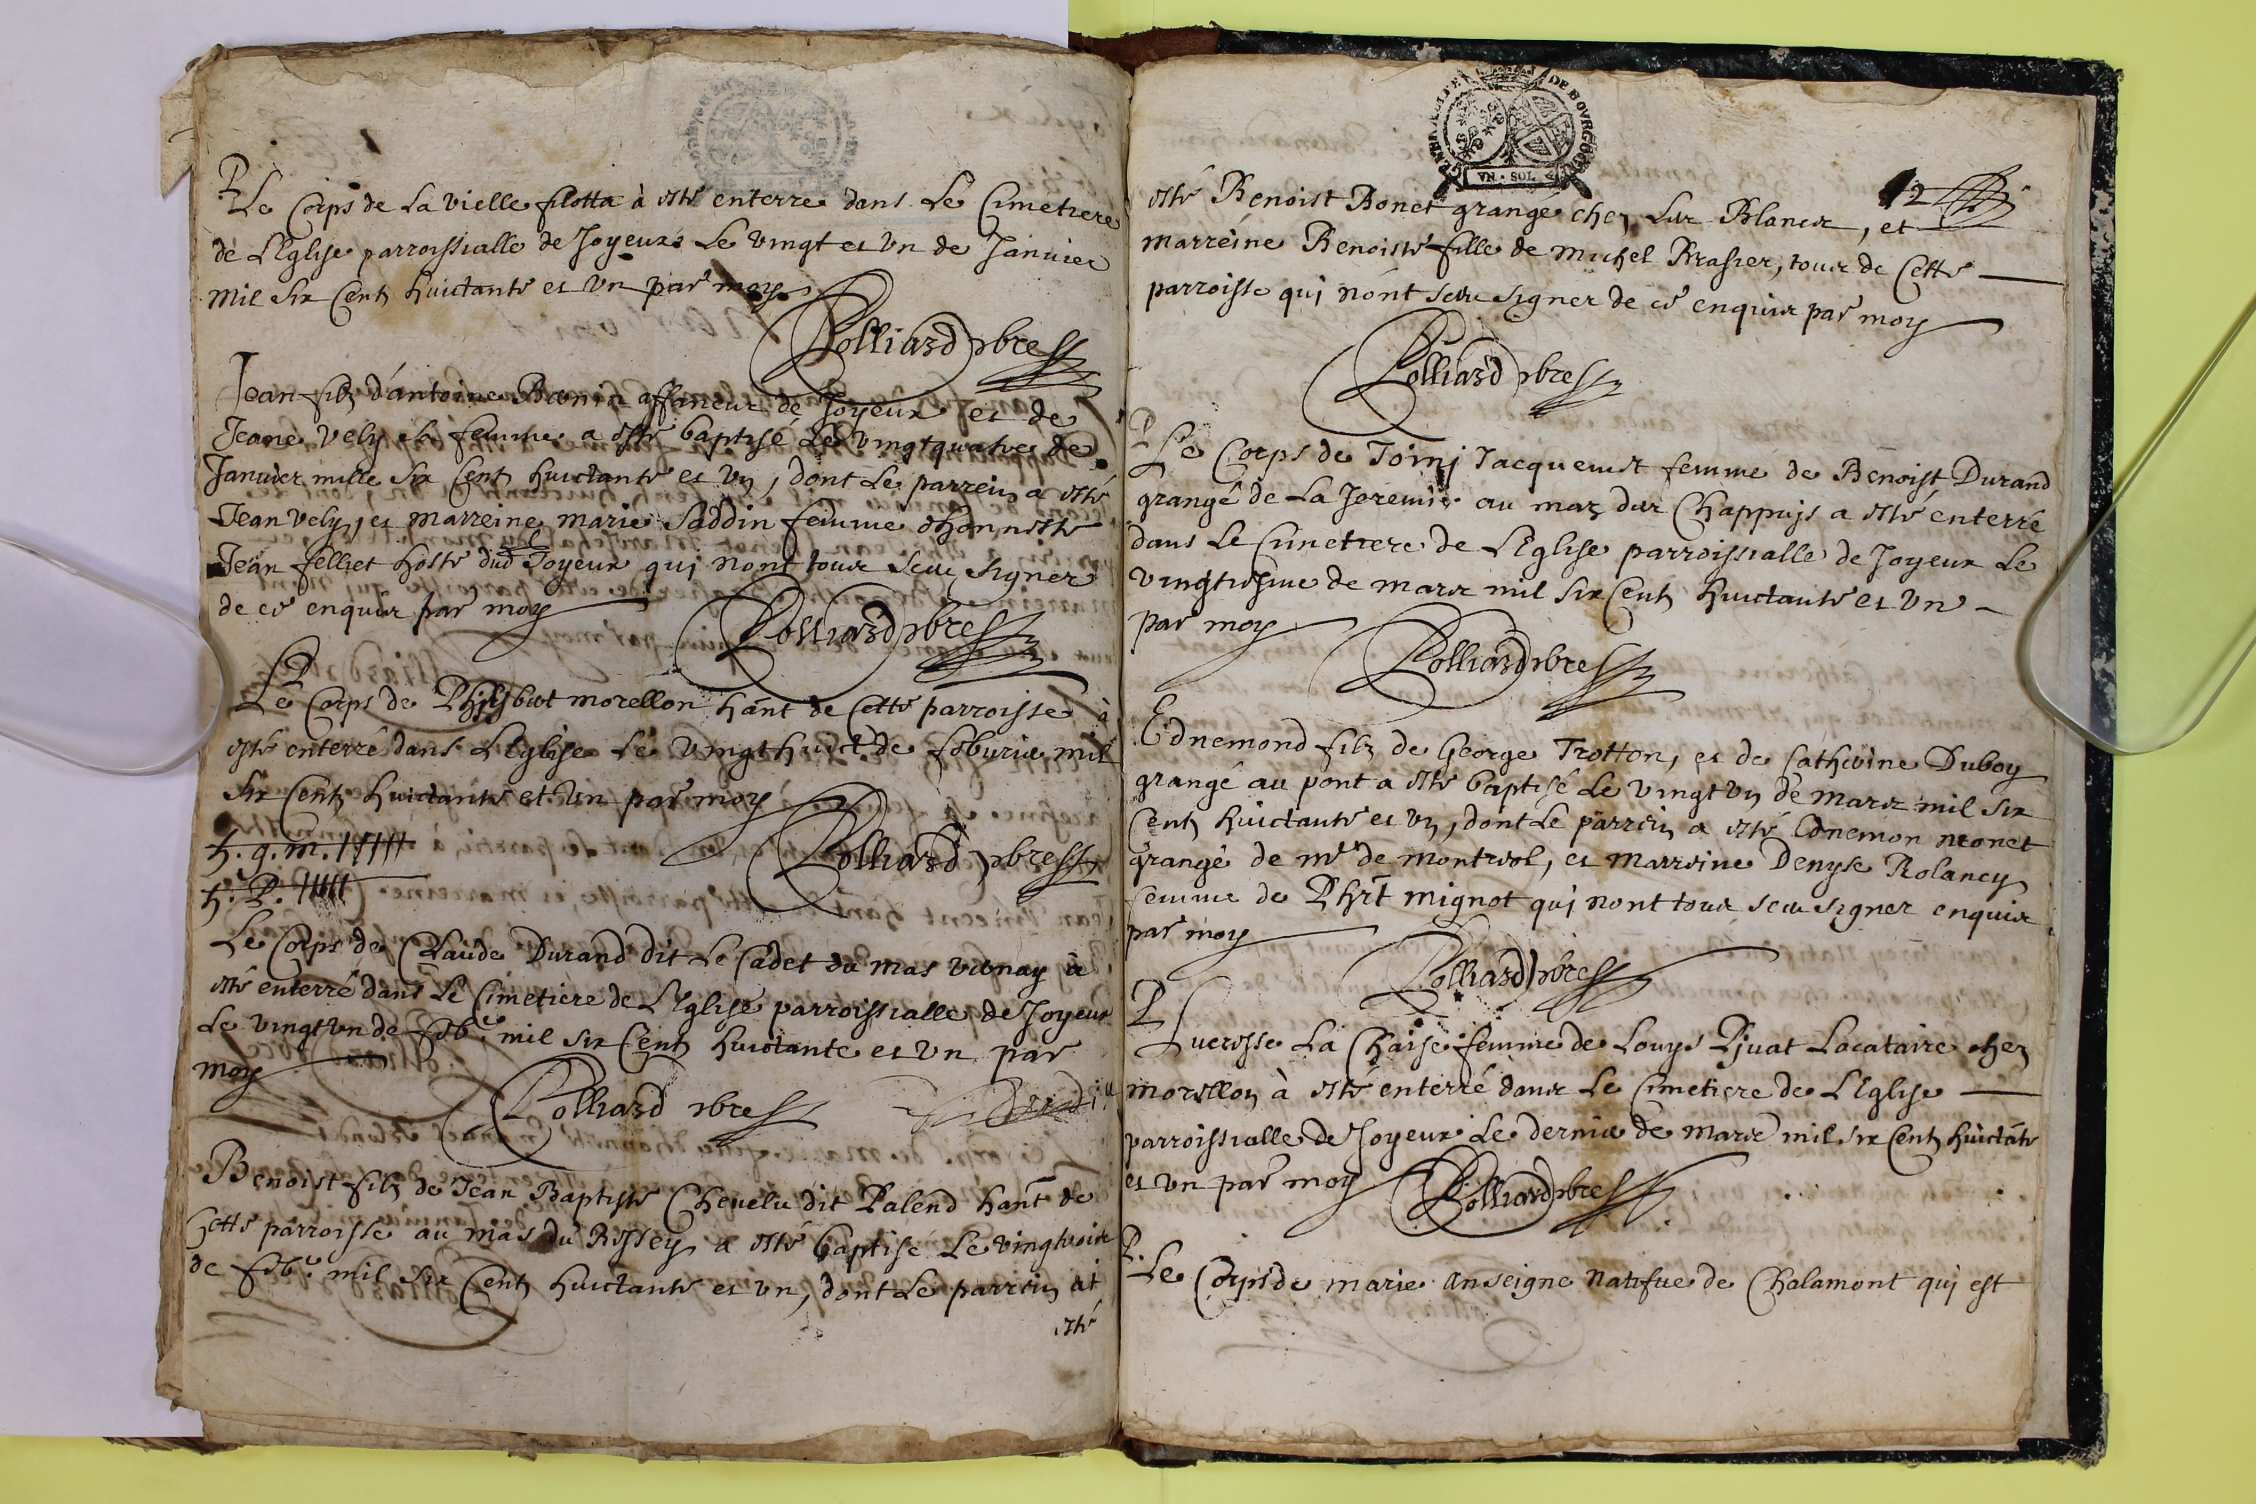 P
Le Corps de La vielle filotta à esté enterre dans Le Cimetiere
de L'Eglise parroissialle de Joyeux Le vingt et un de Janvier
mil six Cent huictante et un par moy
Rolliard pbre
Jean filz d'antoine affaneur de Joyeux et de
Jeane Vely sa femme a esté baptisé Le vingtquatre de
Janvier mille six Cent huictante et un, dont Le parrein a esté
Jean vely, et marreine marie Saddin femme d'honneste
Jean felliet hoste dud Joyeux qui n'ont tous sceu signer
de ce enquis par moy
Rolliard pbre
P
Le Corps de Philibert morellon hant de Cette parroisse à
esté enterré dans L'Eglise Le vingt huict de feburie mil
six Cent huictante et un par moy
Rolliard pbre
h. g. m. 11111
h. P. 11111
Le Corps de Claude Durand dit Le Cadet du mas vernay à
esté enterré dans Le Cimetiere de L'Eglise parroissialle de Joyeux
Le vingt un de feb.e mil six Cent huictante et un par
moy
Rolliard pbre
Benoist filz de Jean Baptiste Chevelu dit Palend hant de
Cette parroisse au mas du a esté baptise Le vingtrois
de feb.e mil six Cent huictante et un, dont Le parrein at
esté
GENERALITE DE BOURGOGNE
UN SOL
12
esté Benoist Bonet grangé chez Blanc, et
marreine Benoiste fille de michel Brasier, tous de Cette
parroisse qui n'ont sceu signer de ce enquis par moy
Rolliard pbre
P
Le Corps de Toini Jacquemet femme de Benoist Durand
grangé de La Jeremie au maz des Chappuis a esté enterré
dans Le Cimetiere de L'Eglise parroissialle de Joyeux Le
vingtiesme de mars mil six Cent huictante et un
par moy
Rolliard pbre
Ednemond filz de George Trotton, et de Catherine Duboy
grangé au pont a esté baptisé Le vingt un de mars mil six
Cent huictante et un, dont Le parrein a esté Ednemon monet
grangé de mr de montreol, et marreine Denyse Rolancy
femme de Phrt mignot qui n'ont tous sceu signer enquis
par moy
Rolliard pbre
P
Lucresse La Chaise femme de Louys Pjvat Locataire chez
morellon à esté enterré dans Le Cimetiere de L'Eglise
parroissialle de Joyeux Le dernier de mars mil six Cent huictate
et un par moy
Rolliard pbre
P.
Le Corps de marie anseigne natifve de Chalamont qui est